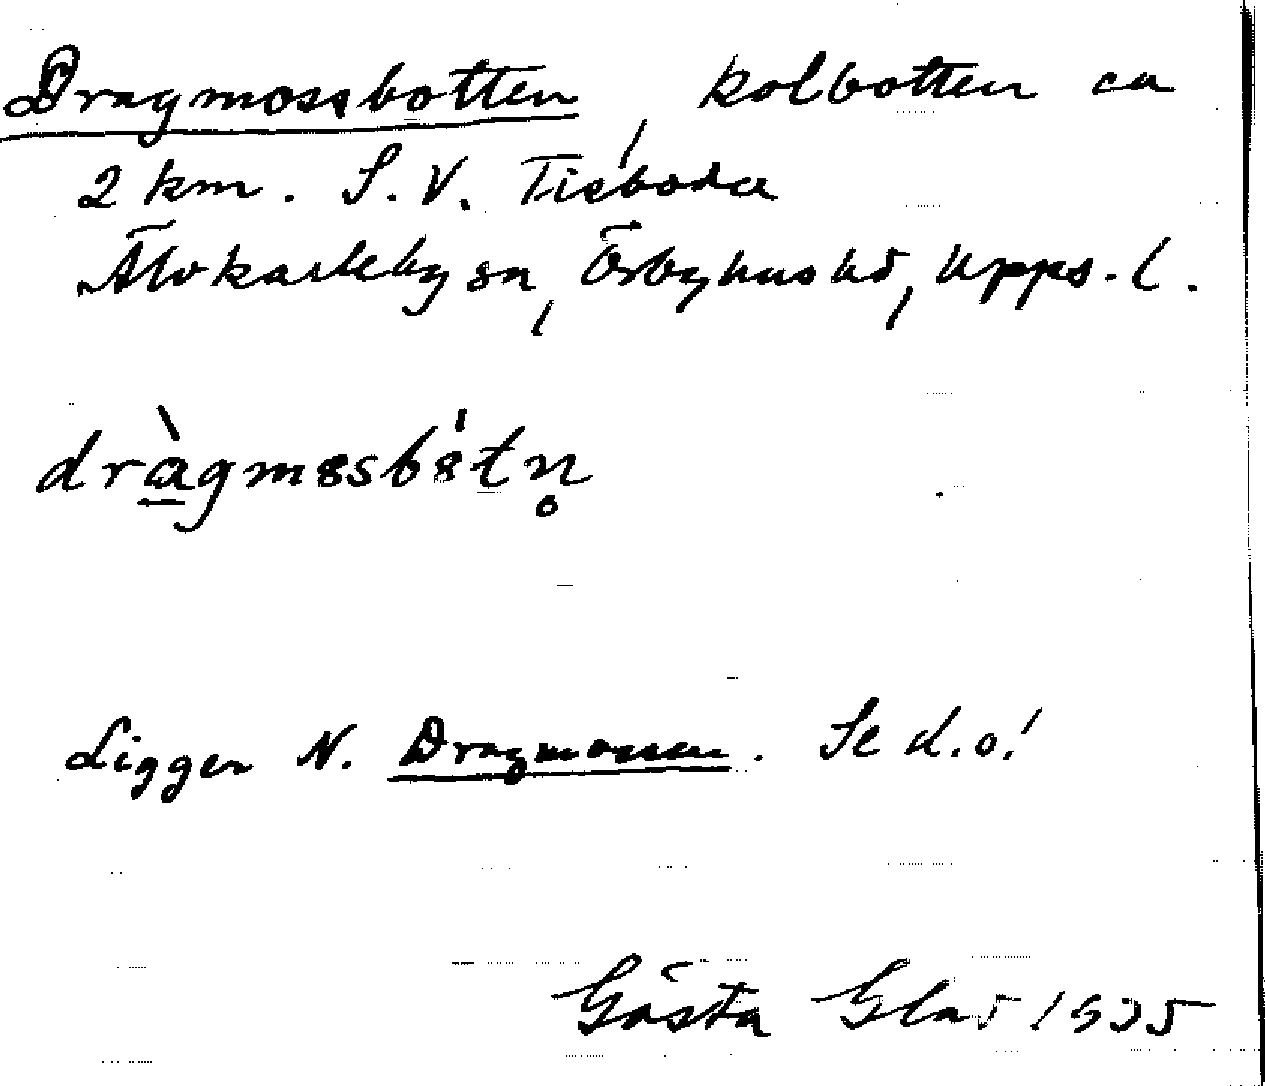 Dragmossbotten, kolbotten ca
2 km. S.V. Tisboda
Älvkarleby sn, Örbyhus hd, Upps. l.
dràgmosbótn̥
Ligger N. Dragmossen. Se d.o.!
Gösta Glad 1935